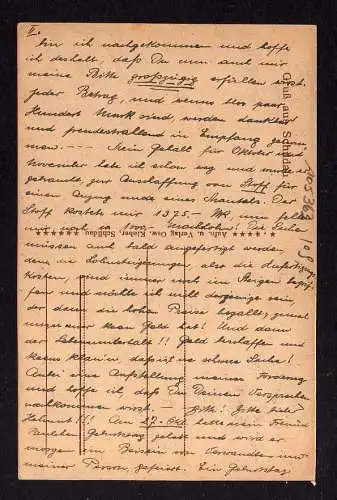 II.
bin ich nachgekommen und hoffe
ich deshalb, daß Du nun auch mir
meine Bitte großzügig erfüllen wirst.
Jeder Betrag, und wenns blos paar
Hundert Mark sind, werden dankbar
und freudestrahlend in Empfang genom-
men. --- Mein Gehalt für Oktober und
November habe ich schon weg und wurde es
gebraucht, zur Anschaffung von Stoff für
einen Anzug und eines Mantels. Der
Stoff kostete mir 1375.- Mk, nun fehlen
mir noch ca 1000.- Die Sachen
müssen auch bald angefertigt werden,
denn die Lohnsteigerungen, also die
kosten, sind immer noch im Steigen begrif-
fen und möchte ich nicht derjenige sein,
der dann die hohen Preise bezahlt, zumal
man nur kein Geld hat! Und dann
der Lebensunterhalt!! Geld beschaffen und
keins klau'n, daß ist ne schwere Sache!
Anbei eine Aufstellung meiner
und hoffe ich, daß Du Deinen Versprechen
nachkommen wirst. - Bitte! Bitte liebe
!!! Am 27. Okt. hatte mein Freund
Geburtstag gehabt und wird er
morgen im Beisein von Verwandten und
meiner Person gefeiert. Ein Geburtstag
Gruß aus Schildau
Aufn. u. Verlag Osw. Schildau